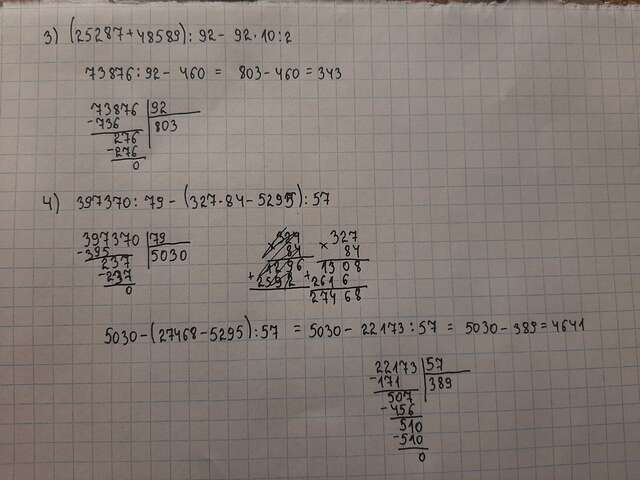 3) (25287+48589):92- 92·10:2
73876:92- 460 = 803-460=343
73876 92
-736 803
276
-276
0
4) 397370:79-(327·84-5295):57
397370 79
-395 5030
237
-237
0
× 327
84
1308
+ 2616
27468
5030-(27468-5295):57 = 5030-22173:57 = 5030-389=4641
22173 57
-171 389
507
-456
510
-510
0